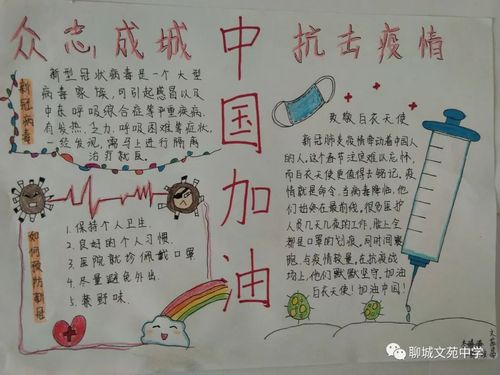 众志成城
中国加油
抗击疫情
新冠病毒
新型冠状病毒是一个大型
病毒家族,可引起感冒以及
中东呼吸综合症等严重疾病.
有发热、乏力、呼吸困难等症状,
一经发现,需马上进行隔离
治疗就医.
如何预防新冠
1.保持个人卫生.
2.良好的个人习惯.
3.医院就诊佩戴口罩
4.尽量避免外出.
5.禁野味.
致敬白衣天使
新冠肺炎疫情牵动着中国人
的人,这个春节注定难以忘怀,
而白衣天使更值得去铭记,疫
情就是命令,当病毒降临,他
们始终在最前线,很多医护
人员几天几夜的工作,脸上全
都是口罩的划痕,同时间赛
跑,与疫情较量,在抗疫战
场上,他们默默坚守,加油
白衣天使!加油中国!
聊城文苑中学